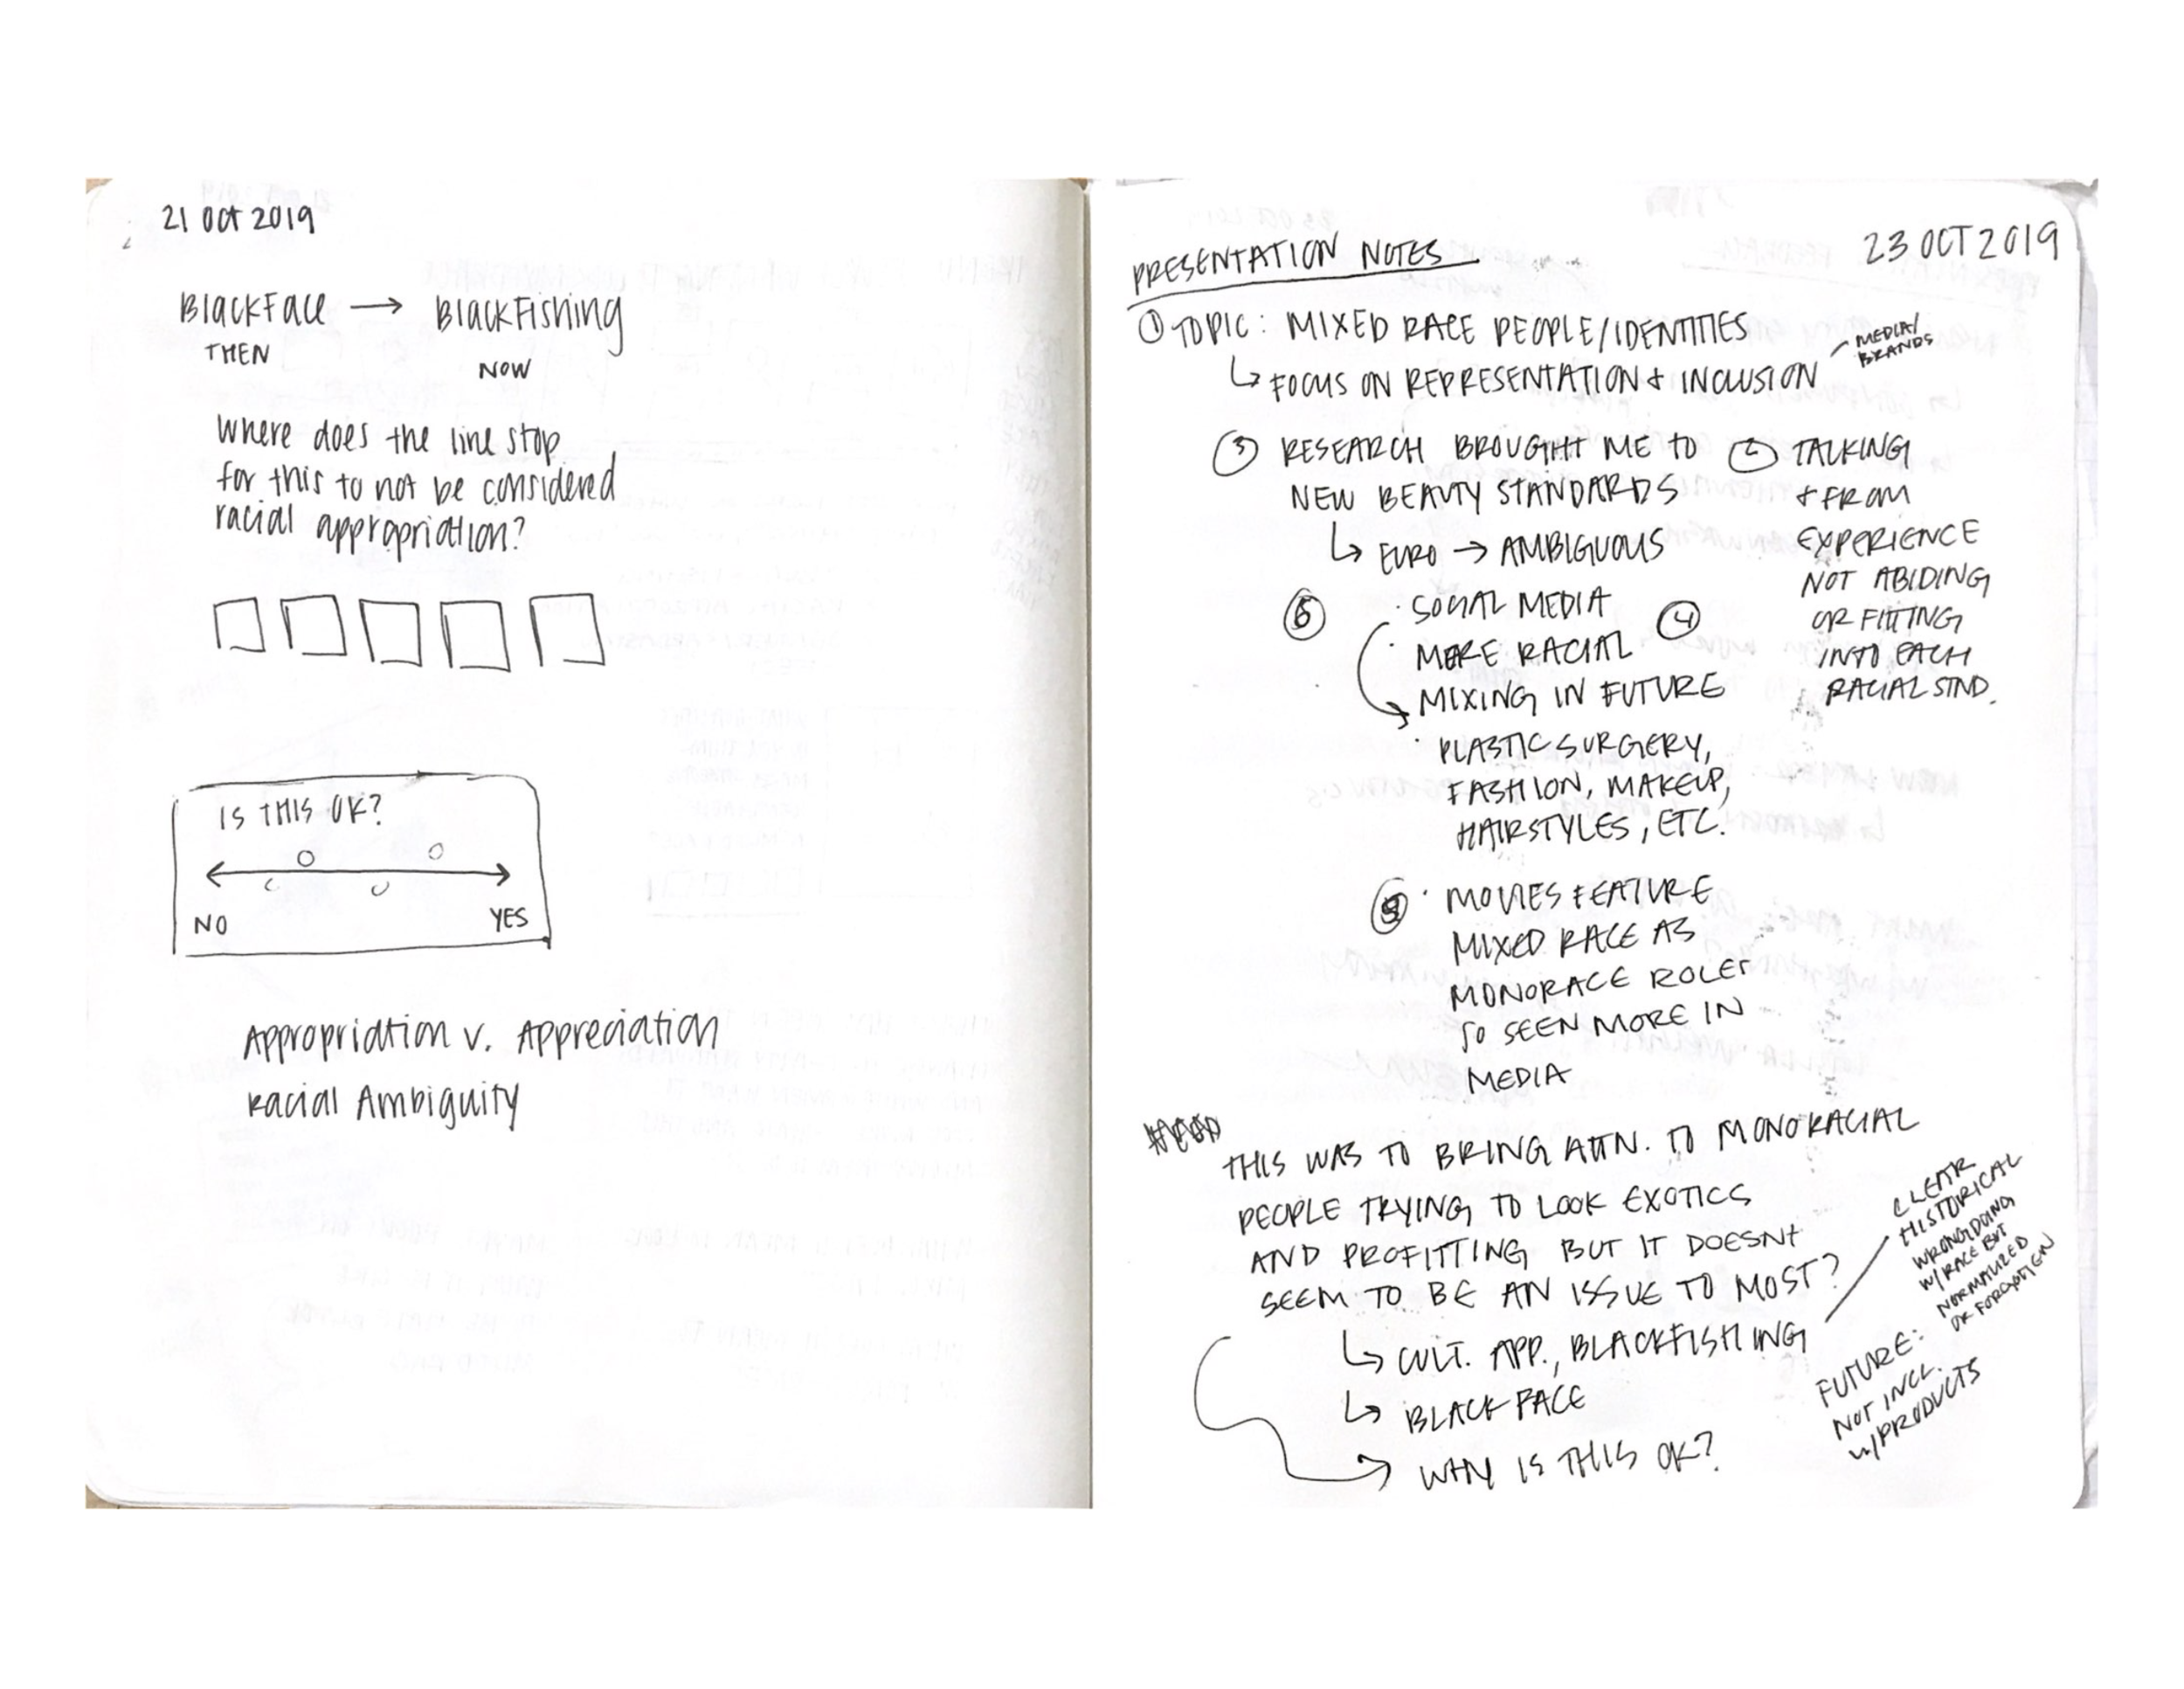 21 Oct 2019
BlackFace → BlackFishing
THEN
NOW
Where does the line stop
for this to not be considered
racial appropriation?
IS THIS OK?
NO
YES
Appropriation v. Appreciation
Racial Ambiguity
23 OCT 2019
PRESENTATION NOTES
① TOPIC: MIXED RACE PEOPLE/IDENTITIES
↳ FOCUS ON REPRESENTATION + INCLUSION
– MEDIA/
BRANDS
③ RESEARCH BROUGHT ME TO
NEW BEAUTY STANDARDS
↳ EURO → AMBIGUOUS
② TALKING
+ FROM
EXPERIENCE
NOT ABIDING
OR FITTING
INTO EACH
RACIAL STND.
⑤ · SOCIAL MEDIA ④
· MORE RACIAL
MIXING IN FUTURE
· PLASTIC SURGERY,
FASHION, MAKEUP,
HAIRSTYLES, ETC.
· MOVIES FEATURE
MIXED RACE AS
MONORACE ROLES
SO SEEN MORE IN
MEDIA
THIS WAS TO BRING ATTN. TO MONORACIAL
PEOPLE TRYING TO LOOK EXOTICS
AND PROFITTING BUT IT DOESNT
SEEM TO BE AN ISSUE TO MOST?
↳ CULT. APP., BLACKFISHING
↳ BLACKFACE
→ WHY IS THIS OK?
CLEAR
HISTORICAL
WRONGDOING
W/RACE BUT
NORMALIZED
OR FORGOTTEN
FUTURE:
NOT INCL.
W/PRODUCTS